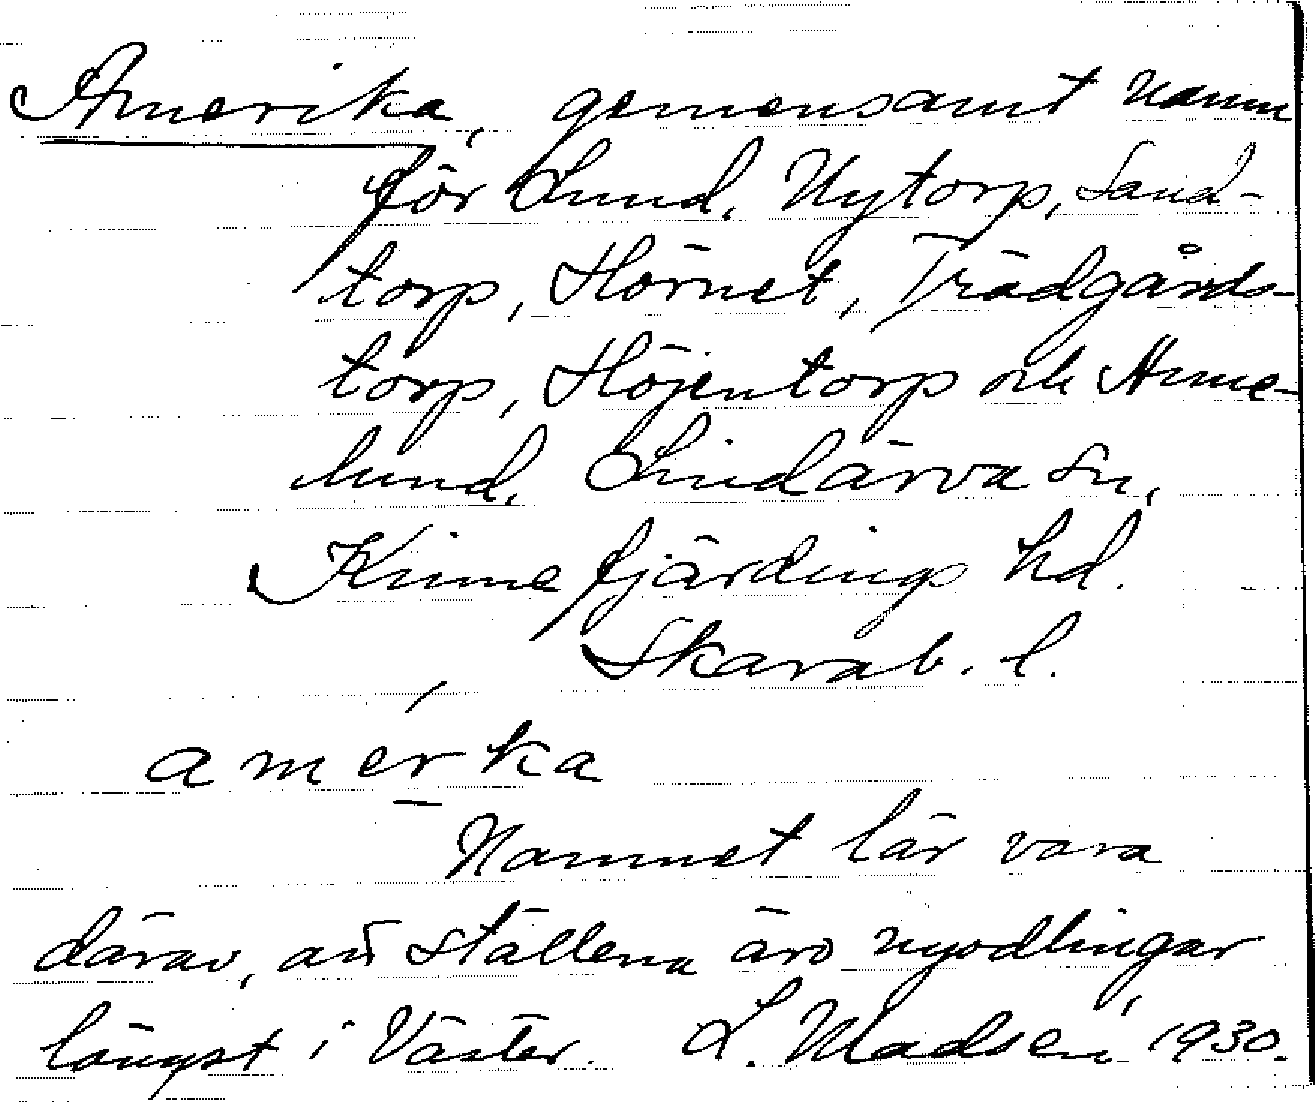 Amerika, gemensamt namn
för Lund, Nytorp, Sand-
torp, Hörnet, Trädgårds-
torp, Höjentorp och Anne-
lund, Lindärva sn,
Kinnefjärdings hd.
Skarab. l.
amerka
Namnet lär vara
därav, att ställena äro nyodlingar
längst i Väster. L. Madsén 1930.